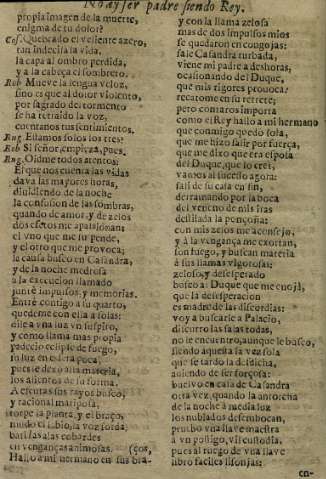 No ay ser padre siendo Rey.
propia imagen de la muerte,
enigma de tu dolor?
Cos. Quebrado el valiente azero,
tan indecisa la vida,
la capa al ombro perdida,
y a la cabeça el sombrero.
Rob Mueve la lengua veloz,
sino es que al dolor violento,
por sagrado del tormento
se ha retraido la voz,
cuentanos tus sentimientos.
Rug. Estamos solos los tres?
Rob Si señor, empieza, pues.
Rug. Oidme todos atentos.
El que nos cuenta las vidas
dava las mayores horas,
diuidiendo de la noche
la confusion de las sombras,
quando de amor, y de zelos
dos efectos me apassionan:
el vno que me suspende,
y el otro que me prouoca;
la causa busco en Casandra,
y de la noche medrosa
a la execucion llamado
junte impulsos, y memorias.
Entrè contigo a su quarto,
quedème con ella a solas:
dile a vna luz vn suspiro,
y como llama mas propia
padeciò eclipse de fuego,
tu luz en esfera poca,
pues le dexò a la materia,
los alientos de su forma.
A escuras sus rayos busco,
y racional mariposa,
torpe la planta, y el braço,
mudo el labio, la voz sorda,
bari las alas cobardes
en venganças animosas.
Hallo a mi hermano en sus bra- (ços,
y con la llama zelosa
mas de dos impulsos mios
se quedaron en congojas:
sale Casandra turbada,
viene mi padre a deshoras,
ocasionando del Duque,
que mis rigores prouoca:
recatome en su retrete;
pero contaros importa
como el Rey hallò a mi hermano
que conmigo quedò sola,
que me hizo salir por fuerça,
que me dixo que era esposa
del Duque, que lo creì;
vamos al successo agora:
salì de su casa en fin,
derramando por la boca
del veneno de mis iras
destilada la ponçoña:
con mis zelos me aconsejo,
y à la vengança me exortan,
son fuego, y buscan materia
à sus llamas vigorosas:
zeloso, y desesperado
busco a Duque que me enoja,
que la desesperacion
es madre de las discordias:
voy a buscarle a Palacio,
discurro las salas todas,
no le encuentro, aunque le busco,
siendo aquesta la vez sola
que se tardò la desdicha,
auiendo de ser forçosa:
bueluo en casa de Casandra
otra vez, quando la antorcha
de la noche à media luz
los nublados desembocan,
prueuo vna llaue maestra
a vn postigo, vil custodia,
pues al ruego de vna llaue
abrio faciles lisonjas:
en-